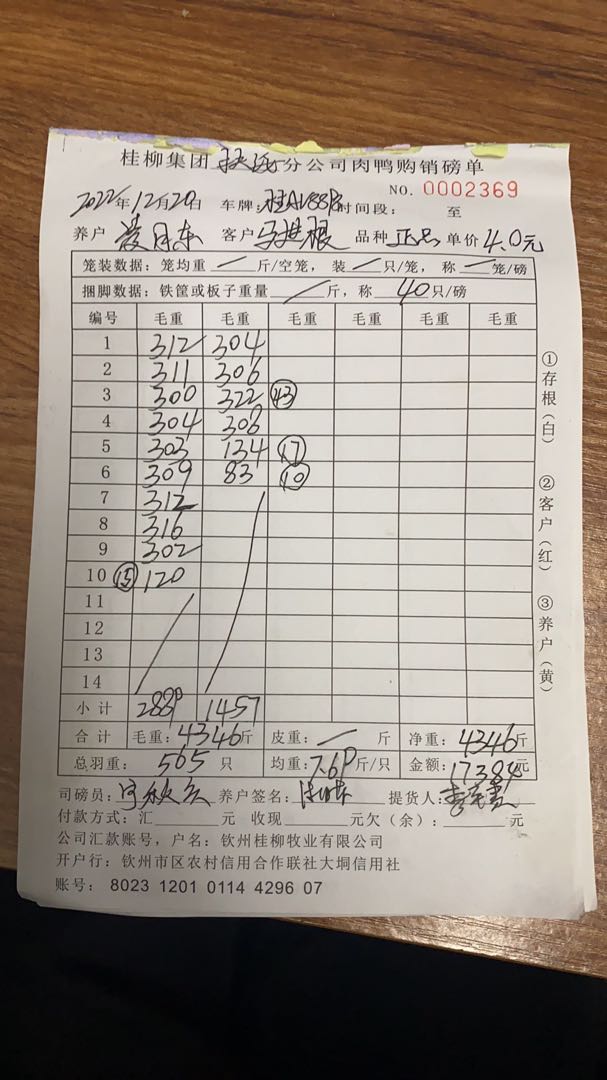 桂柳集团 分公司肉鸭购销磅单
NO. 0002369
2022年12月20日 车牌: 时间段: 至
养户 客户 品种 正品 单价 4.0元
笼装数据: 笼均重 / 斤/空笼, 装 / 只/笼, 称 / 笼/磅
捆脚数据: 铁筐或板子重量 / 斤, 称 40 只/磅
编号 毛重 毛重 毛重 毛重 毛重 毛重
1 312 304
2 311 306
3 300 322 43
4 304 308
5 303 134 17
6 309 83 10
7 312
8 316
9 302
10 15 120
11
12
13
14
小计 1457
合计 毛重: 4346斤 皮重: / 斤 净重: 4346斤
总羽重: 565 只 均重: 斤/只 金额: 17384元
司磅员: 养户签名: 提货人:
付款方式: 汇 元 收现 元欠(余): 元
公司汇款账号, 户名: 钦州桂柳牧业有限公司
开户行: 钦州市区农村信用合作联社大垌信用社
账号: 8023 1201 0114 4296 07
①存根(白)
②客户(红)
③养户(黄)